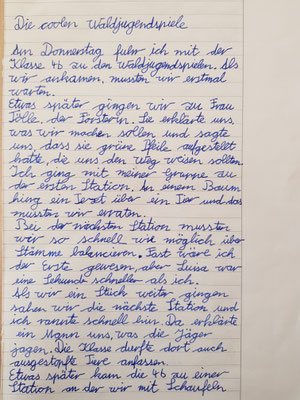 Die coolen Waldjugendspiele
Am Donnerstag fuhr ich mit der
Klasse 4b zu den Waldjugendspielen. Als
wir ankamen, mussten wir erstmal
warten.
Etwas später gingen wir zu Frau
Tölle, der Försterin. Sie erklärte uns,
was wir machen sollen und sagte
uns, dass sie grüne Pfeile aufgestellt
hätte, die uns den Weg weisen sollten.
Ich ging mit meiner Gruppe zu
der ersten Station. An einem Baum
hing ein Text über ein Tier und das
mussten wir erraten.
Bei der nächsten Station mussten
wir so schnell wie möglich über
Stämme balancieren. Fast wäre ich
der Erste gewesen, aber Luisa war
eine Sekunde schneller als ich.
Als wir ein Stück weiter gingen
sahen wir die nächste Station und
ich rannte schnell hin. Da erklärte
ein Mann uns, was die Jäger
jagen. Die Klasse durfte dort auch
ausgestopfte Tiere anfassen.
Etwas später kam die 4b zu einer
Station an der wir mit Schaufeln